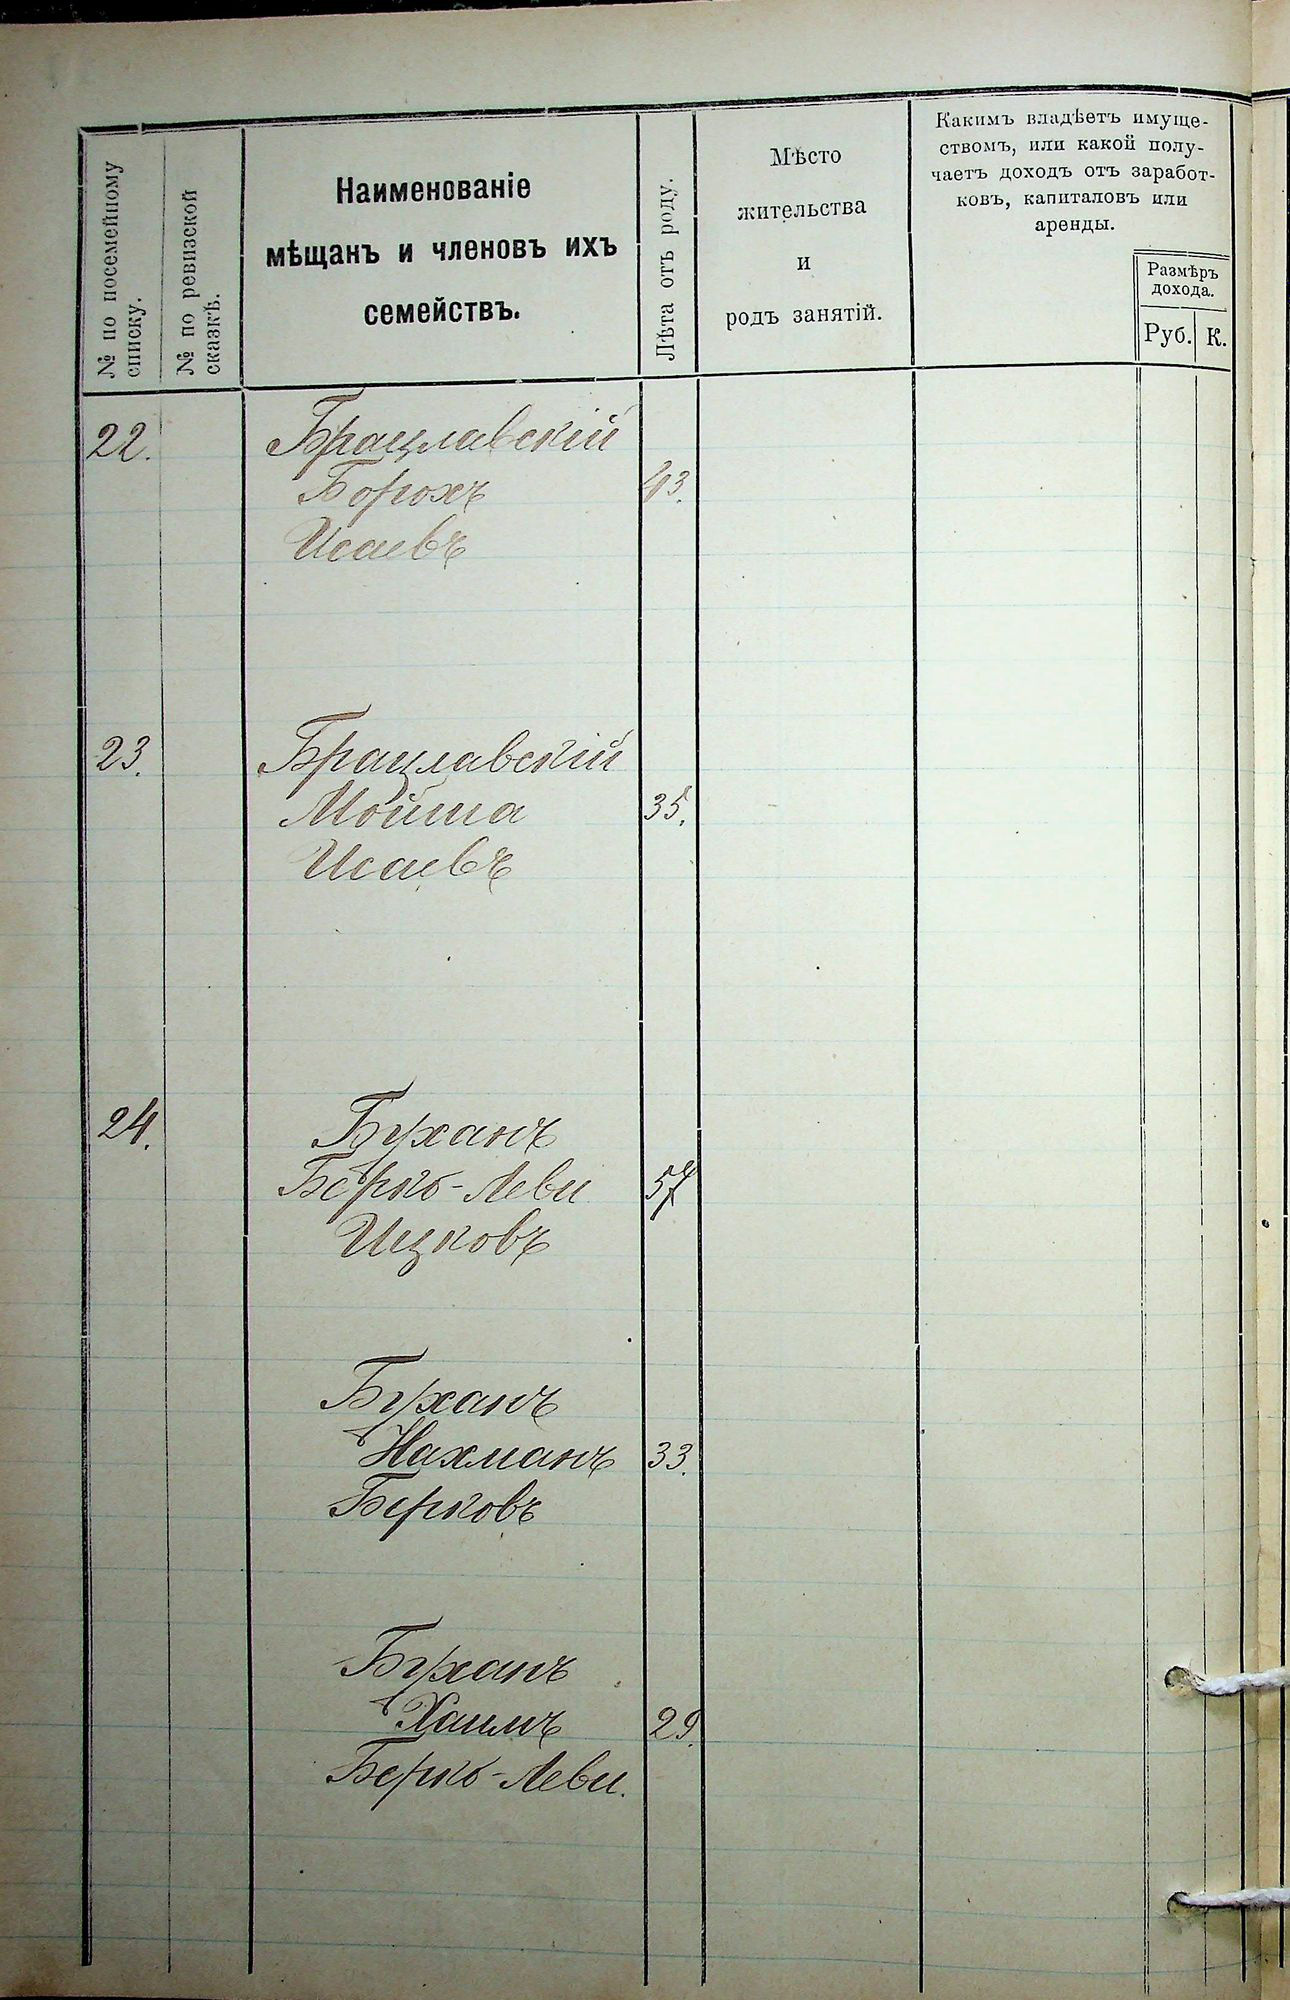 № по посемейному
списку.
№ по ревизской
сказкѣ.
Наименованіе
мѣщанъ и членовъ ихъ
семействъ.
Лѣта отъ роду.
Мѣсто
жительства
и
родъ занятій.
Какимъ владѣетъ имуще-
ствомъ, или какой полу-
чаетъ доходъ отъ заработ-
ковъ, капиталовъ или
аренды.
Размѣръ
дохода.
Руб. К.
22. Брацлавскій
Борохъ 43.
Исаевъ
23. Брацлавскій
Мойша 35.
Исаевъ
24. Буханъ
Берко-Леви 57
Ицковъ
Буханъ
Нахманъ 33.
Берковъ
Буханъ
Хаимъ 29.
Берко-Леви.